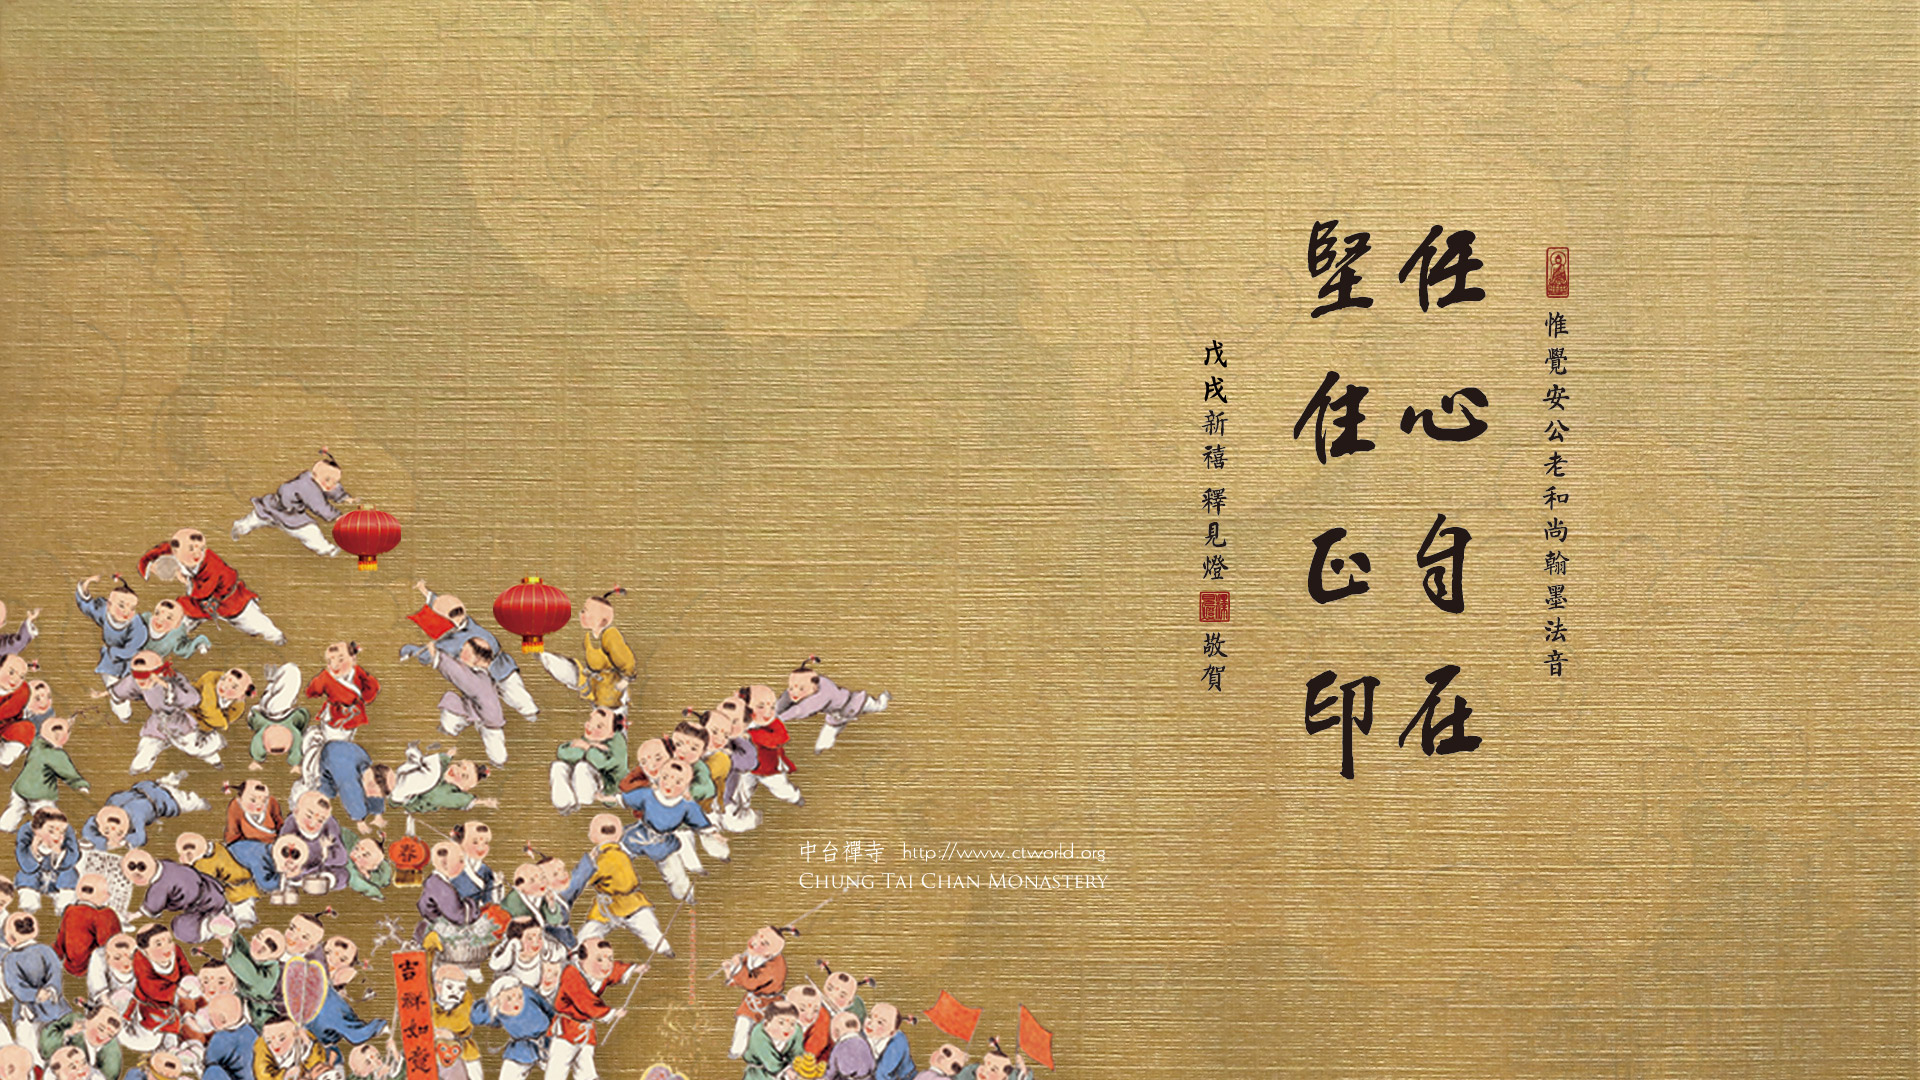 惟覺安公老和尚翰墨法音
任心自在
堅住正印
戊戌新禧 釋見燈 敬賀
中台禪寺 http://www.ctworld.org
CHUNG TAI CHAN MONASTERY
春
吉祥如意